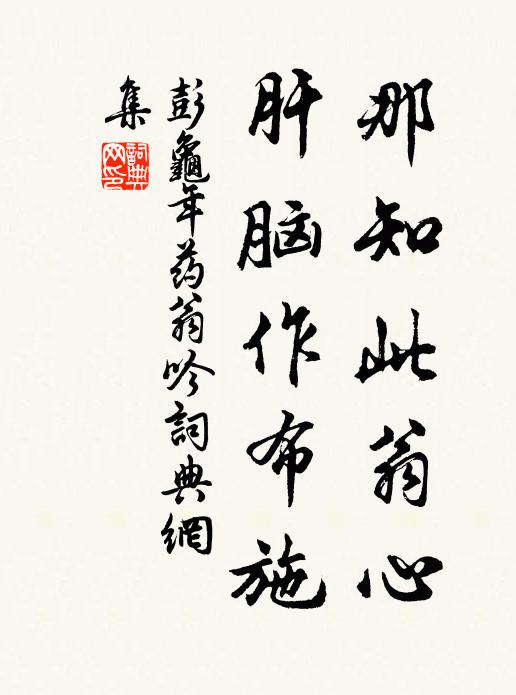 那知此翁心
肝脑作布施
彭龜年药翁吟詞典網
集
詞典网印